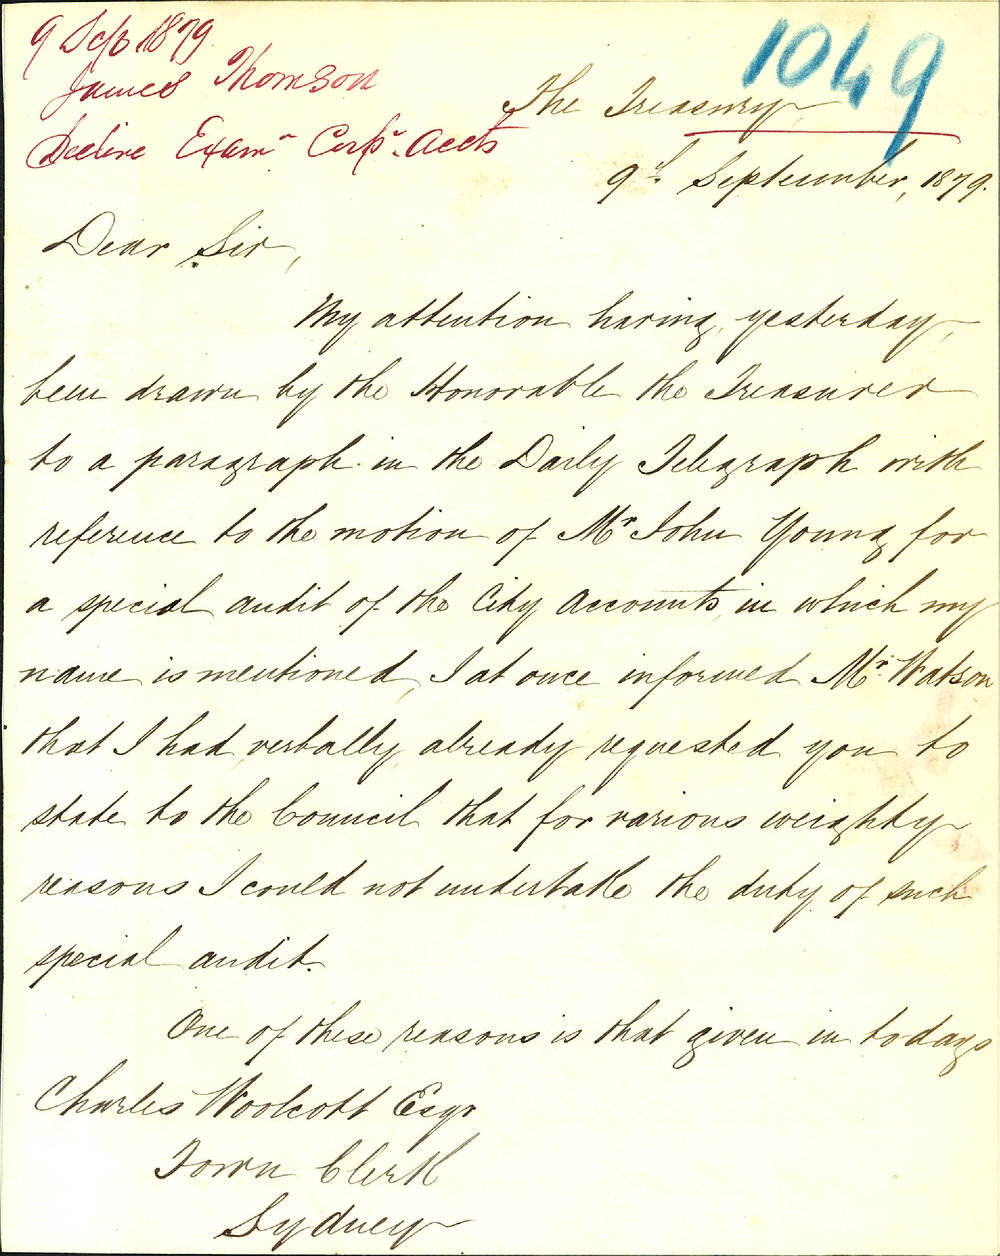 9 Sep 1879
James Thomson
Decline Examn Corpn. Accts
1049
The Treasury,
9th September, 1879.
Dear Sir,
My attention having, yesterday,
been drawn by the Honorable the Treasurer
to a paragraph in the Daily Telegraph with
reference to the motion of Mr John Young for
a special audit of the City Accounts, in which my
name is mentioned, I at once informed Mr. Watson
that I had, verbally, already requested you to
state to the Council that for various weighty
reasons I could not undertake the duty of such
special audit.
One of these reasons is that given in todays
Charles Woolcott Esqr
Town Clerk
Sydney